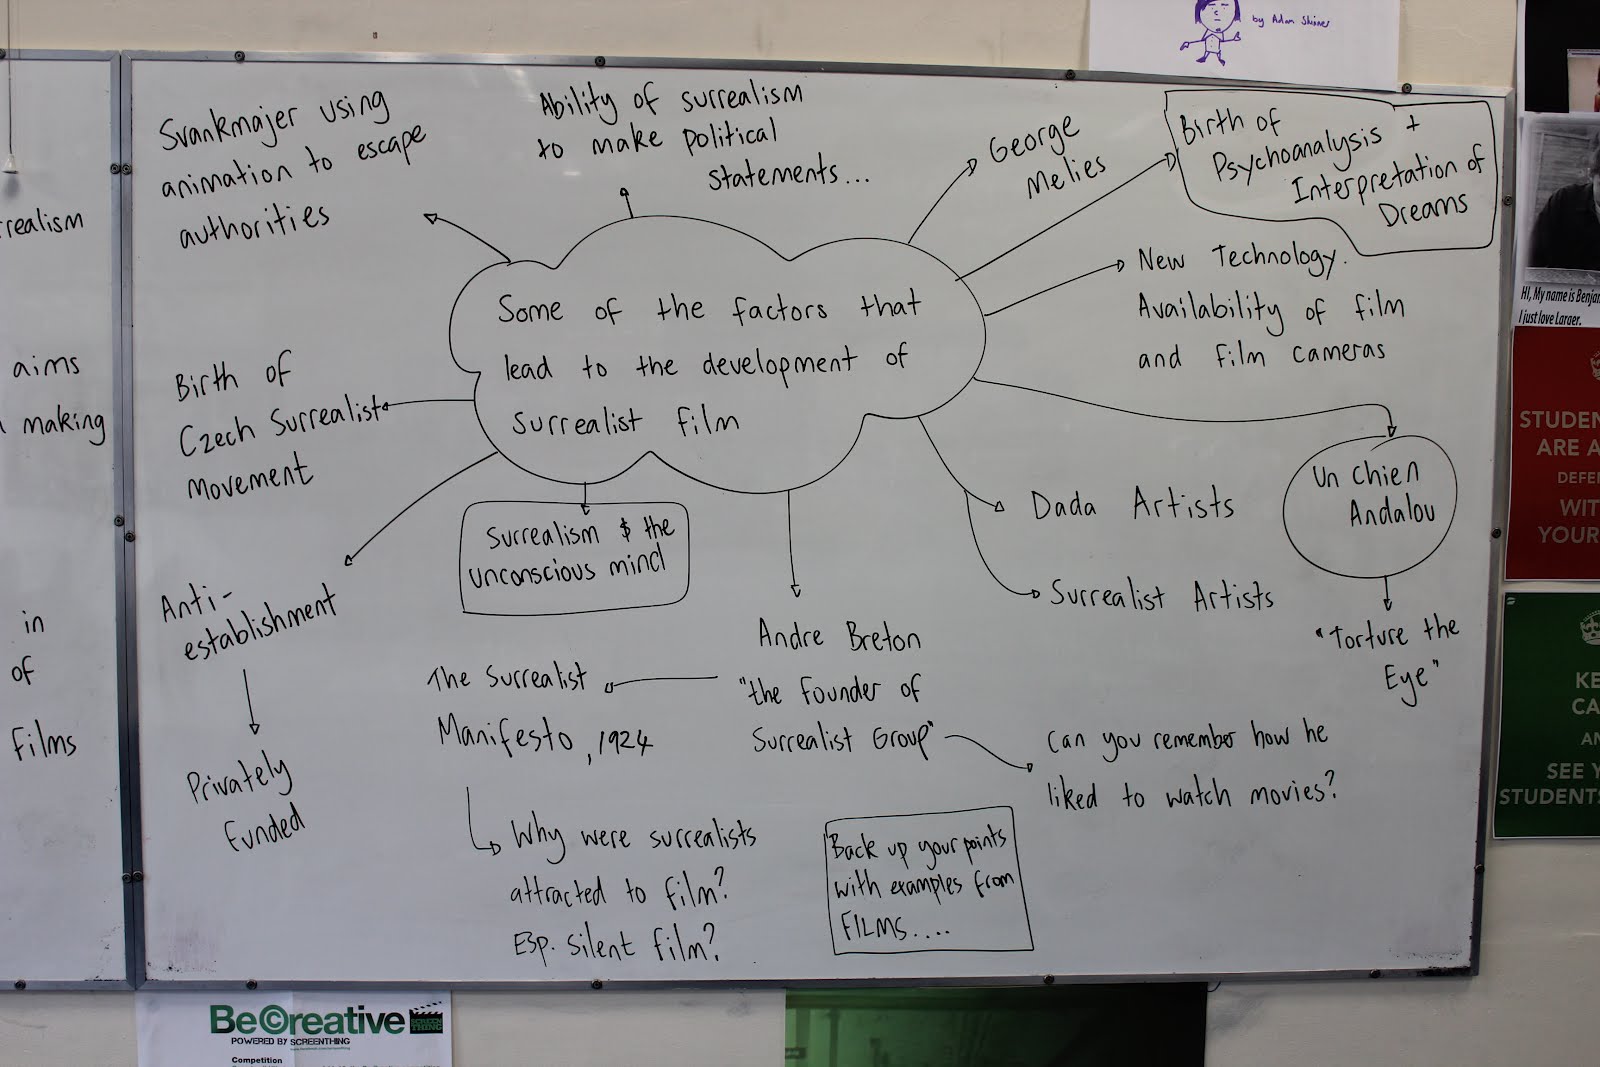 by Adam Skinner
Svankmajer using
animation to escape
authorities
Ability of surrealism
to make political
statements...
George
Melies
Birth of
Psychoanalysis +
Interpretation of
Dreams
New Technology.
Availability of film
and film cameras
Some of the factors that
lead to the development of
Surrealist film
Birth of
Czech Surrealist
movement
Un Chien
Andalou
"Torture the
Eye"
Dada Artists
Surrealist Artists
Surrealism & the
unconscious mind
Anti-
establishment
Privately
funded
Andre Breton
"the founder of
Surrealist Group"
The Surrealist
Manifesto, 1924
Can you remember how he
liked to watch movies?
Why were surrealists
attracted to film?
Esp. silent film?
Back up your points
with examples from
FILMS....
realism
aims
making
in
of
films
HI, My name is
I just love Larger.
ARE
WIT
YOUR
KE
CA
AN
SEE
STUDENTS
Be©reative
SCREEN
THING
POWERED BY SCREENTHING
Competition